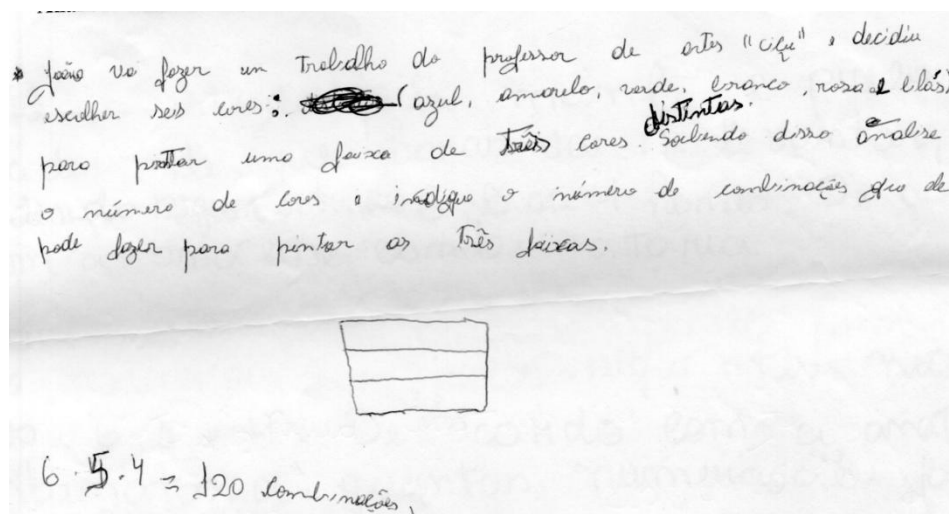 * João vai fazer um trabalho do professor de artes "ciçu" e decidiu
escolher seis cores: (azul, amarelo, verde, branco, rosa e lilás)
para pintar uma faixa de três cores distintas. Sabendo disso analise
o número de cores e indique o número de combinações que ele
pode fazer para pintar as três faixas.
6 . 5 . 4 = 120 combinações.